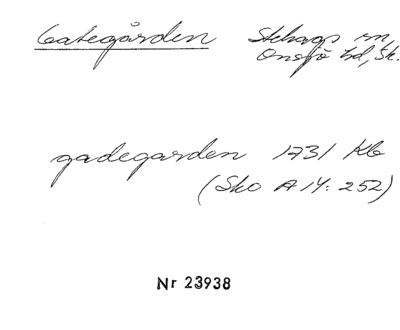 Gategården Stehags sn,
Onsjö hd, Sk.
gadegarden 1731 Kb
(Sko A 14: 252)
Nr 23938